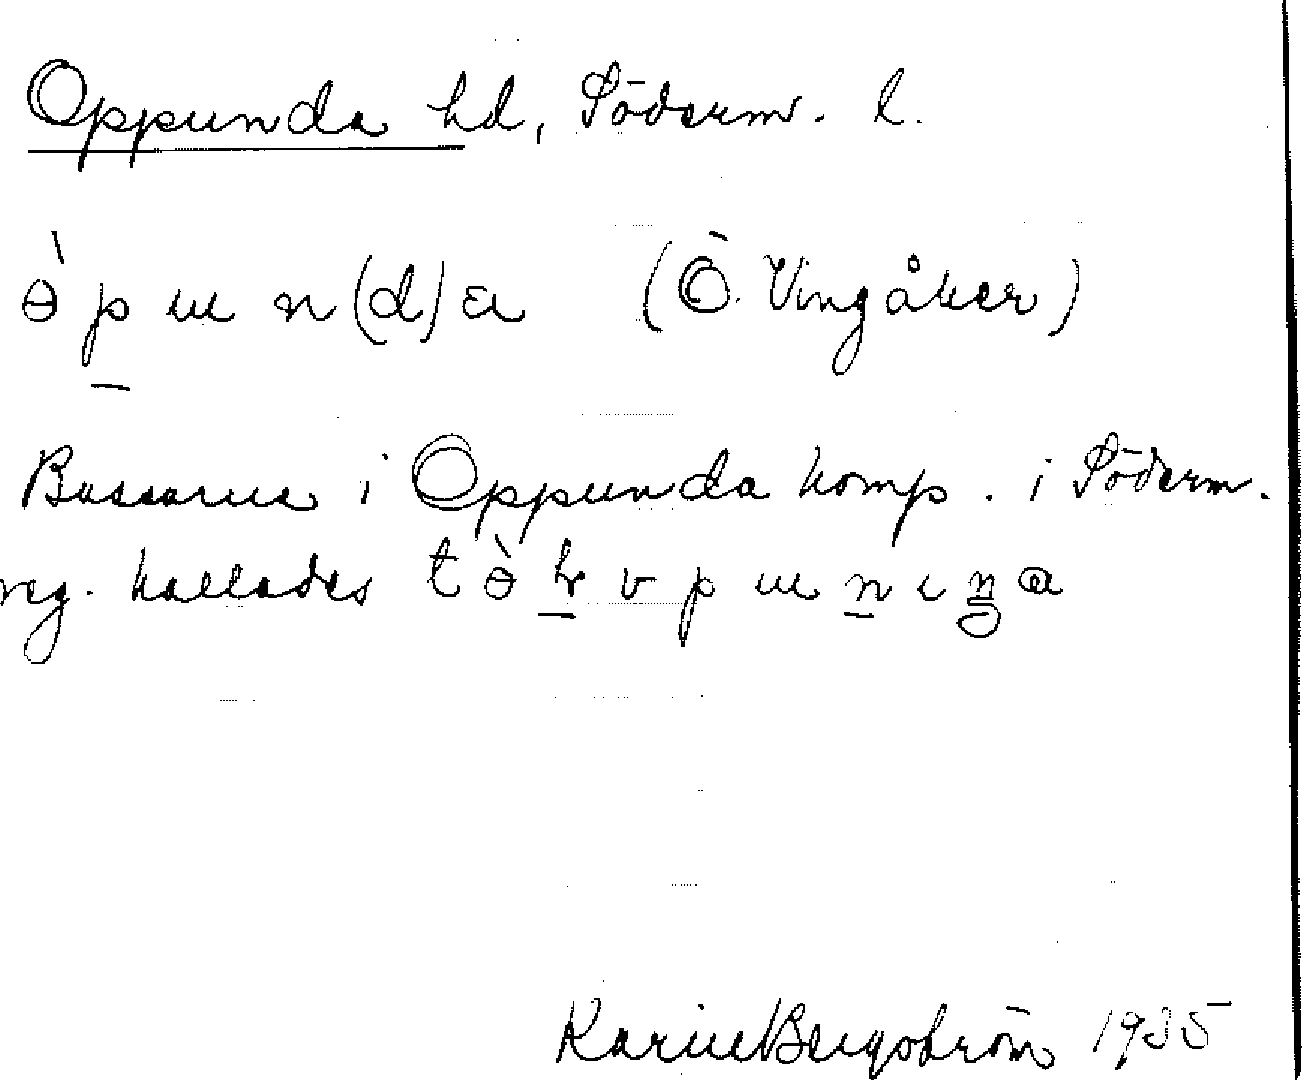 Oppunda hd, Söderm. l.
ɵ̀ p̠ ɯ n(d)a (Ö. Vingåker)
Bussarna i Oppunda komp. i Söderm.
reg. kallades
Karin Bergström 1935